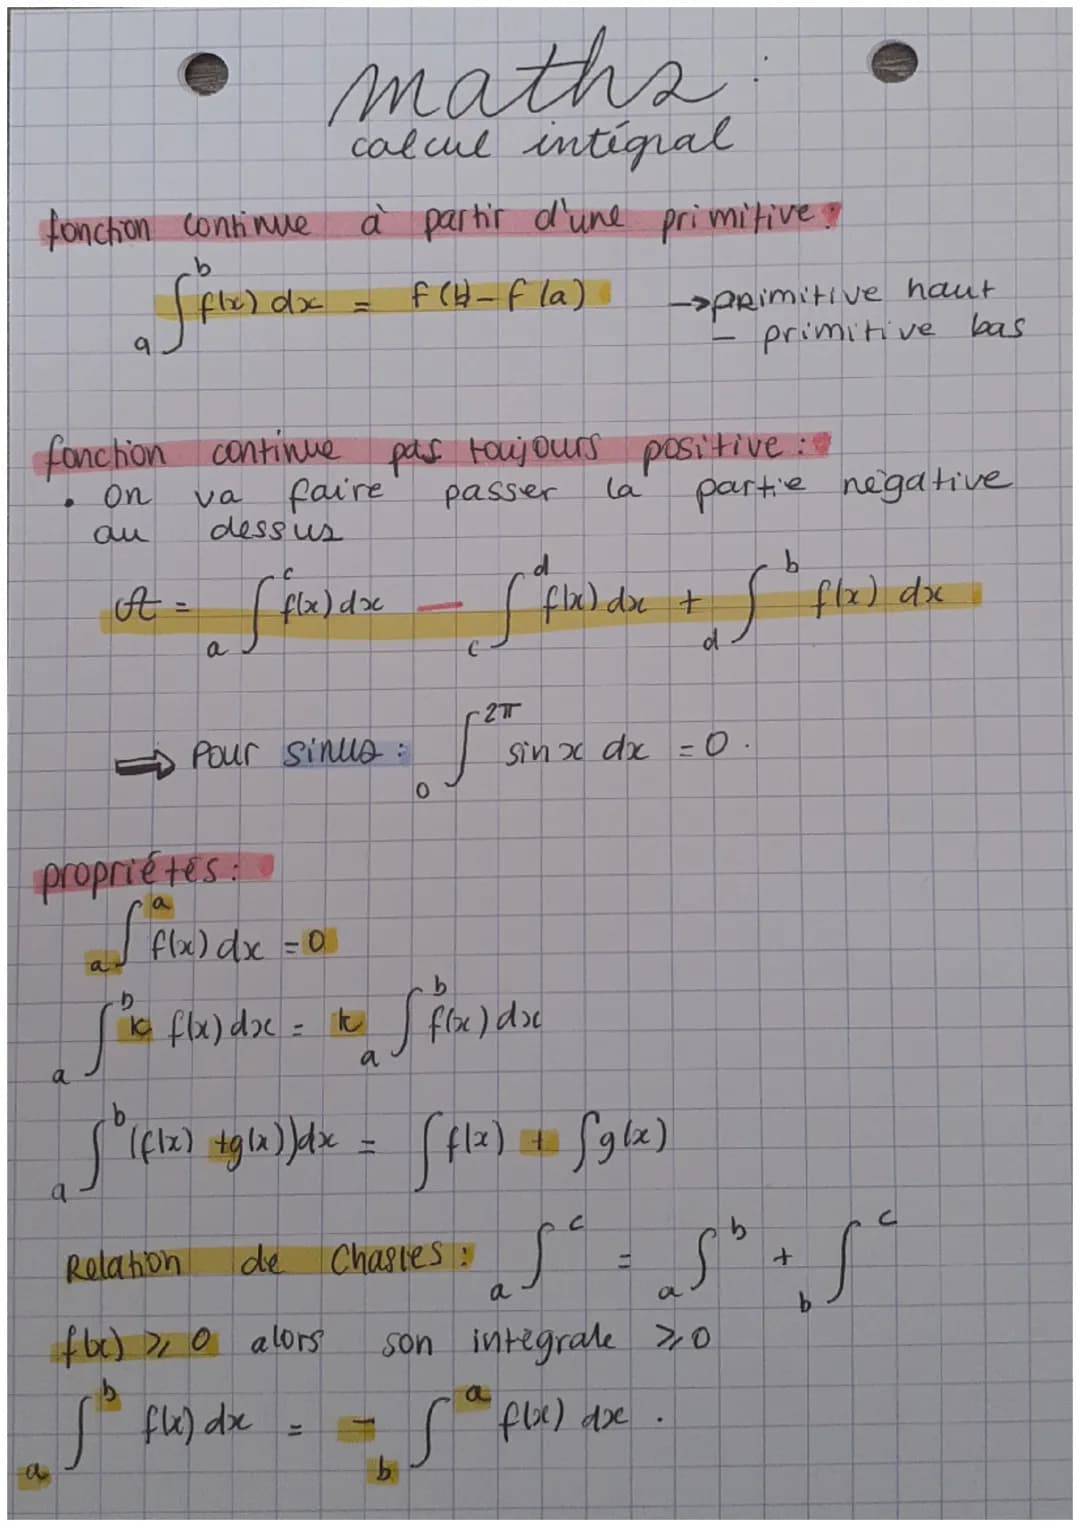 maths :
calcul intégral
fonction continue à partir d'une primitive :
∫_a^b f(x) dx = F(b) - F(a) → primitive haut
- primitive bas
fonction continue pas toujours positive :
• on va faire passer la partie négative
au dessus
A = ∫_a^c f(x) dx - ∫_c^d f(x) dx + ∫_d^b f(x) dx
⇒ Pour sinus : ∫_0^{2π} sin x dx = 0.
propriétés :
∫_a^a f(x) dx = 0
∫_a^b k f(x) dx = k ∫_a^b f(x) dx
∫_a^b (f(x) + g(x)) dx = ∫ f(x) + ∫ g(x)
Relation de Chasles : ∫_a^c = ∫_a^b + ∫_b^c
f(x) ≥ 0 alors son intégrale ≥ 0
∫_a^b f(x) dx = - ∫_b^a f(x) dx .